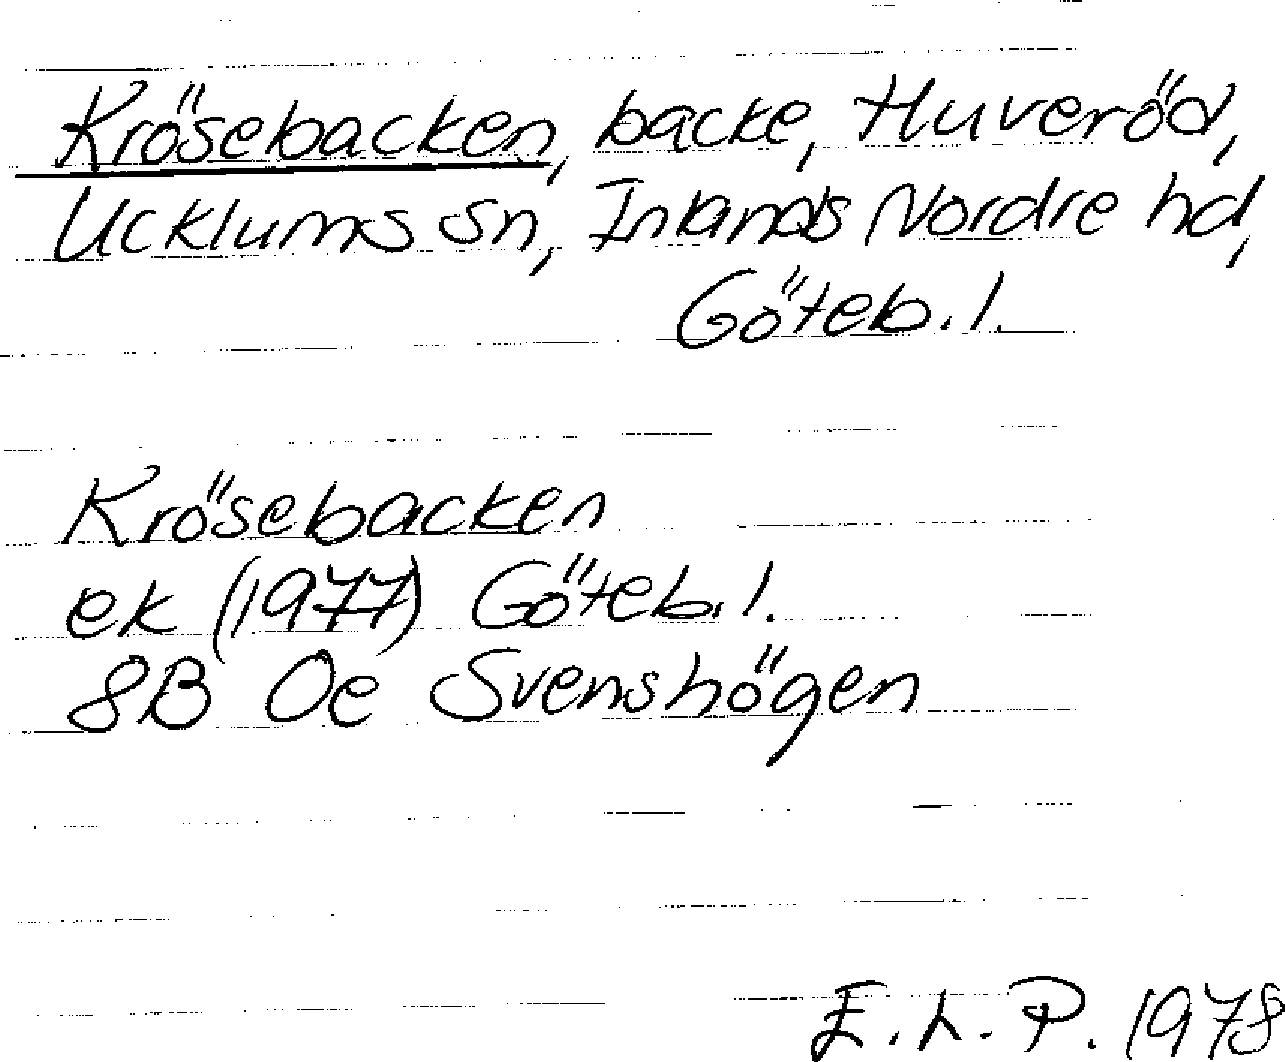 Krösebacken, backe, Huveröd,
Ucklums sn, Inlands Nordre hd,
Göteb. l.
Krösebacken
ek (1977) Göteb. l.
8B 0e Svenshögen
E. L. P. 1978